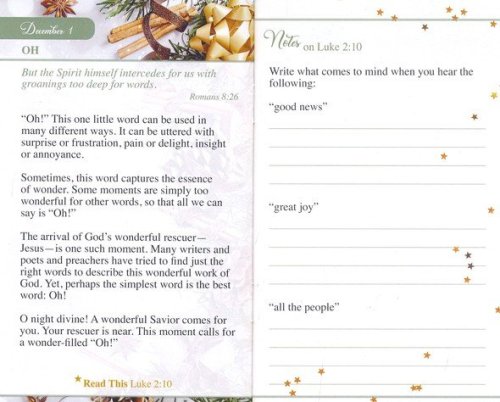 December 1
OH
But the Spirit himself intercedes for us with
groanings too deep for words.
Romans 8:26
“Oh!” This one little word can be used in
many different ways. It can be uttered with
surprise or frustration, pain or delight, insight
or annoyance.
Sometimes, this word captures the essence
of wonder. Some moments are simply too
wonderful for other words, so that all we can
say is “Oh!”
The arrival of God’s wonderful rescuer—
Jesus—is one such moment. Many writers and
poets and preachers have tried to find just the
right words to describe this wonderful work of
God. Yet, perhaps the simplest word is the best
word: Oh!
O night divine! A wonderful Savior comes for
you. Your rescuer is near. This moment calls for
a wonder-filled “Oh!”
Read This Luke 2:10
Notes on Luke 2:10
Write what comes to mind when you hear the
following:
“good news”
“great joy”
“all the people”